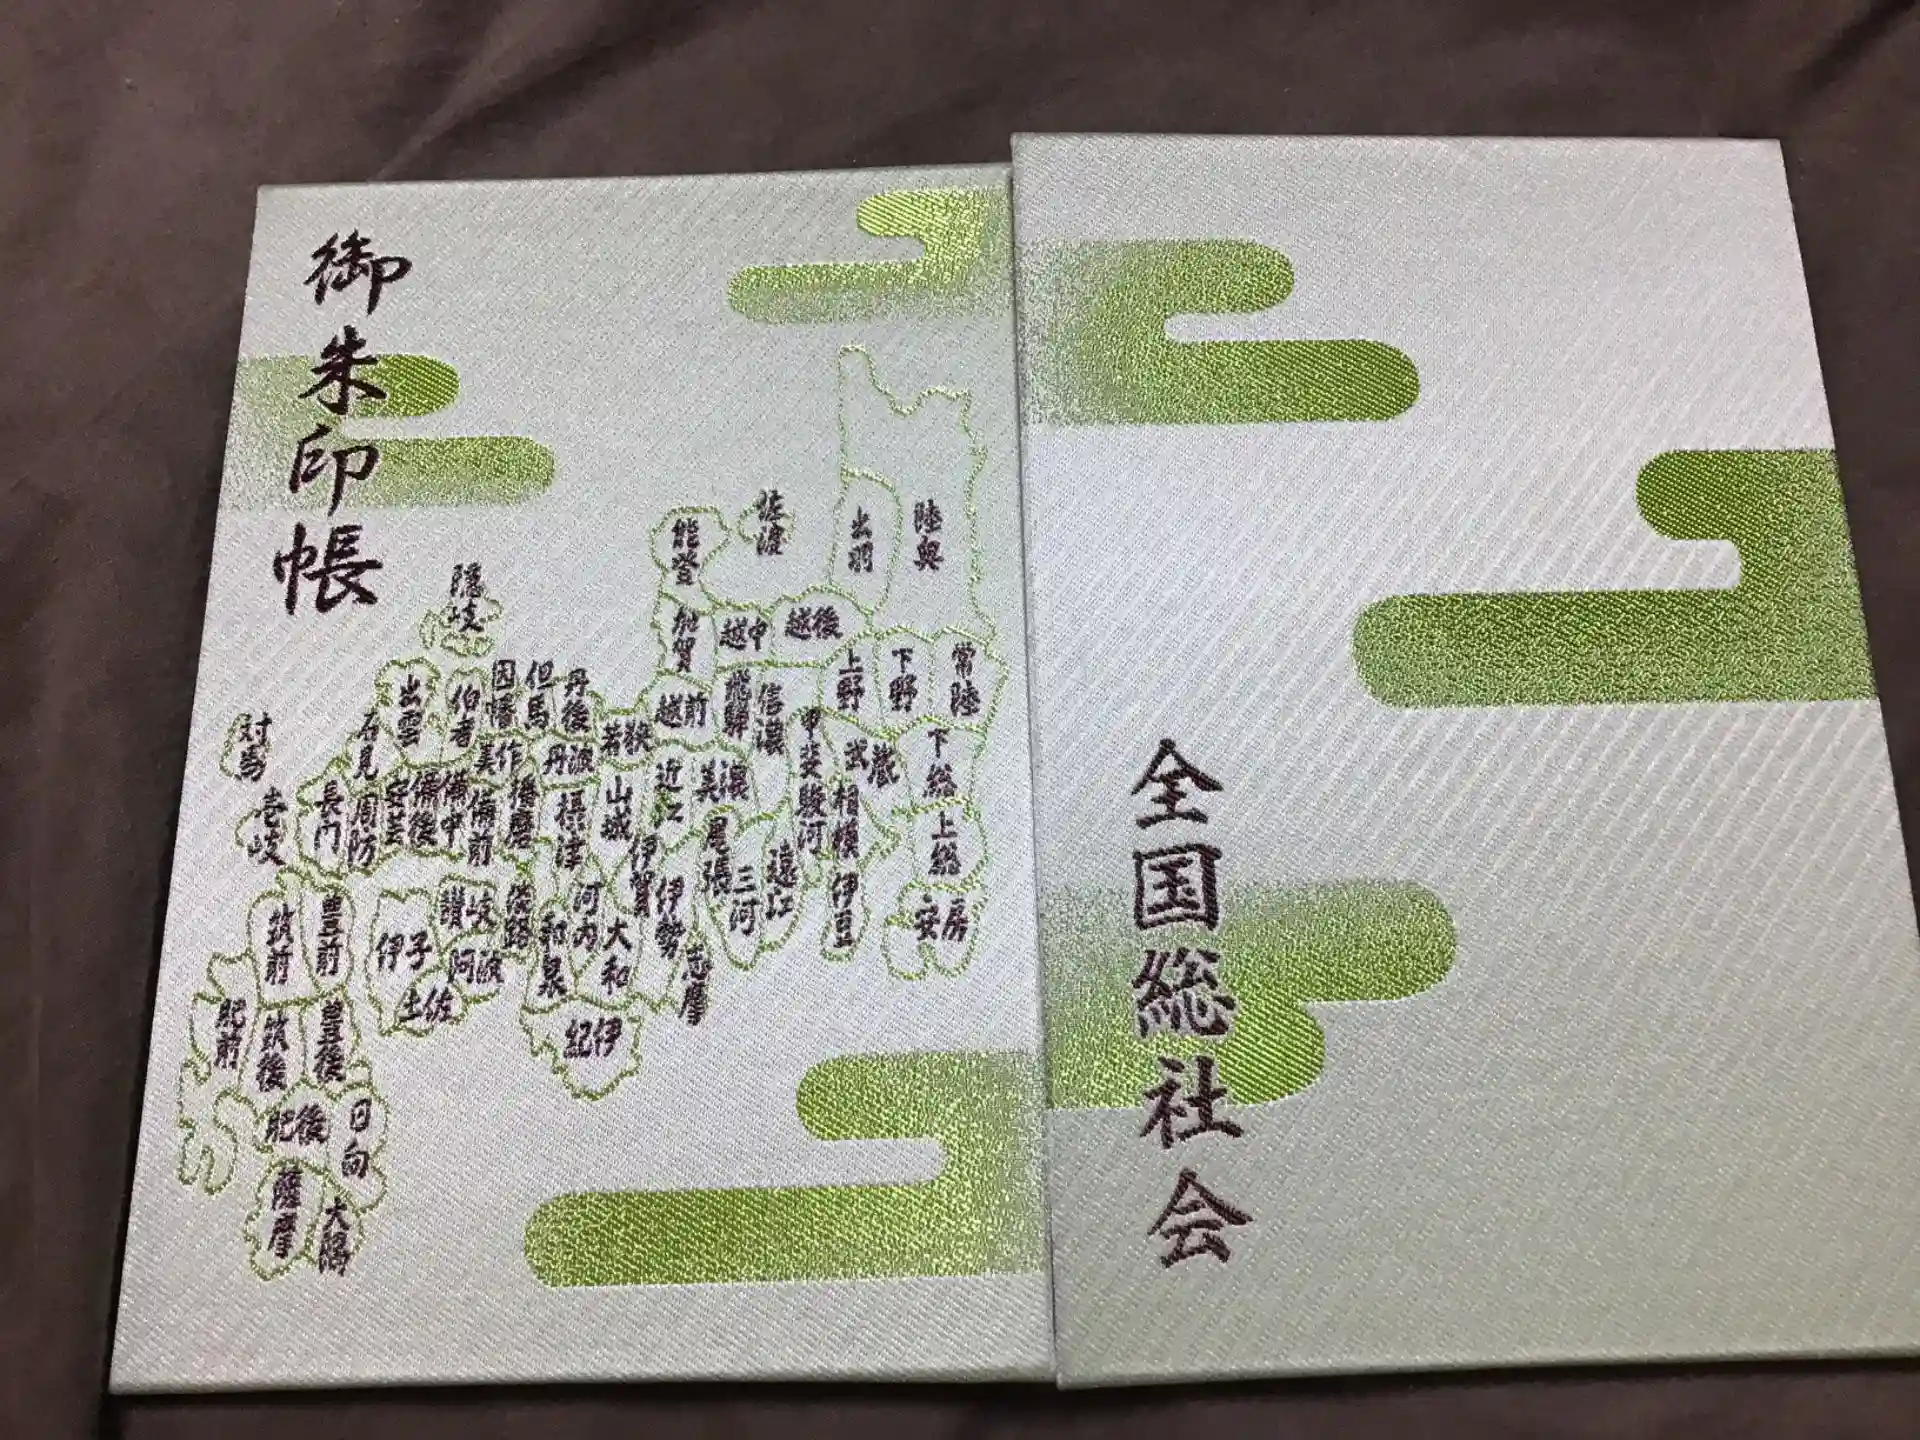 御朱印帳
陸奥
出羽
佐渡
能登
加賀
越中
越後
上野
下野
常陸
隠岐
出雲
伯耆
因幡
但馬
丹後
若狭
越前
飛騨
信濃
甲斐
武蔵
下総
対馬
壱岐
石見
長門
周防
安芸
備後
備中
美作
備前
播磨
丹波
摂津
山城
近江
美濃
尾張
三河
遠江
駿河
相模
伊豆
上総
安房
伊賀
伊勢
志摩
大和
河内
和泉
紀伊
淡路
讃岐
阿波
伊予
土佐
筑前
豊前
肥前
筑後
豊後
肥後
日向
薩摩
大隅
全国総社会